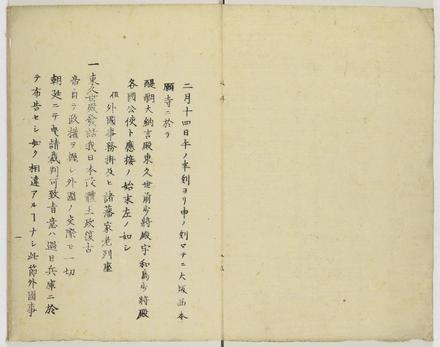 二月十四日午ノ半刻ヨリ申ノ刻マテニ大坂西本
願寺ニ於テ
醍醐大納言殿東久世前少将殿宇和島少将殿
各國公使ト應接ノ始末左ノ如シ
但外國事務掛及ヒ諸藩家老列座
一東久世殿發話我日本政體王政復古
帝自ラ政權ヲ握シ外國ノ交際モ一切
朝廷ニテ曳請裁判可致者意ハ過日兵庫ニ於
テ布告セシ如ク相違アルヿナシ此節外國事